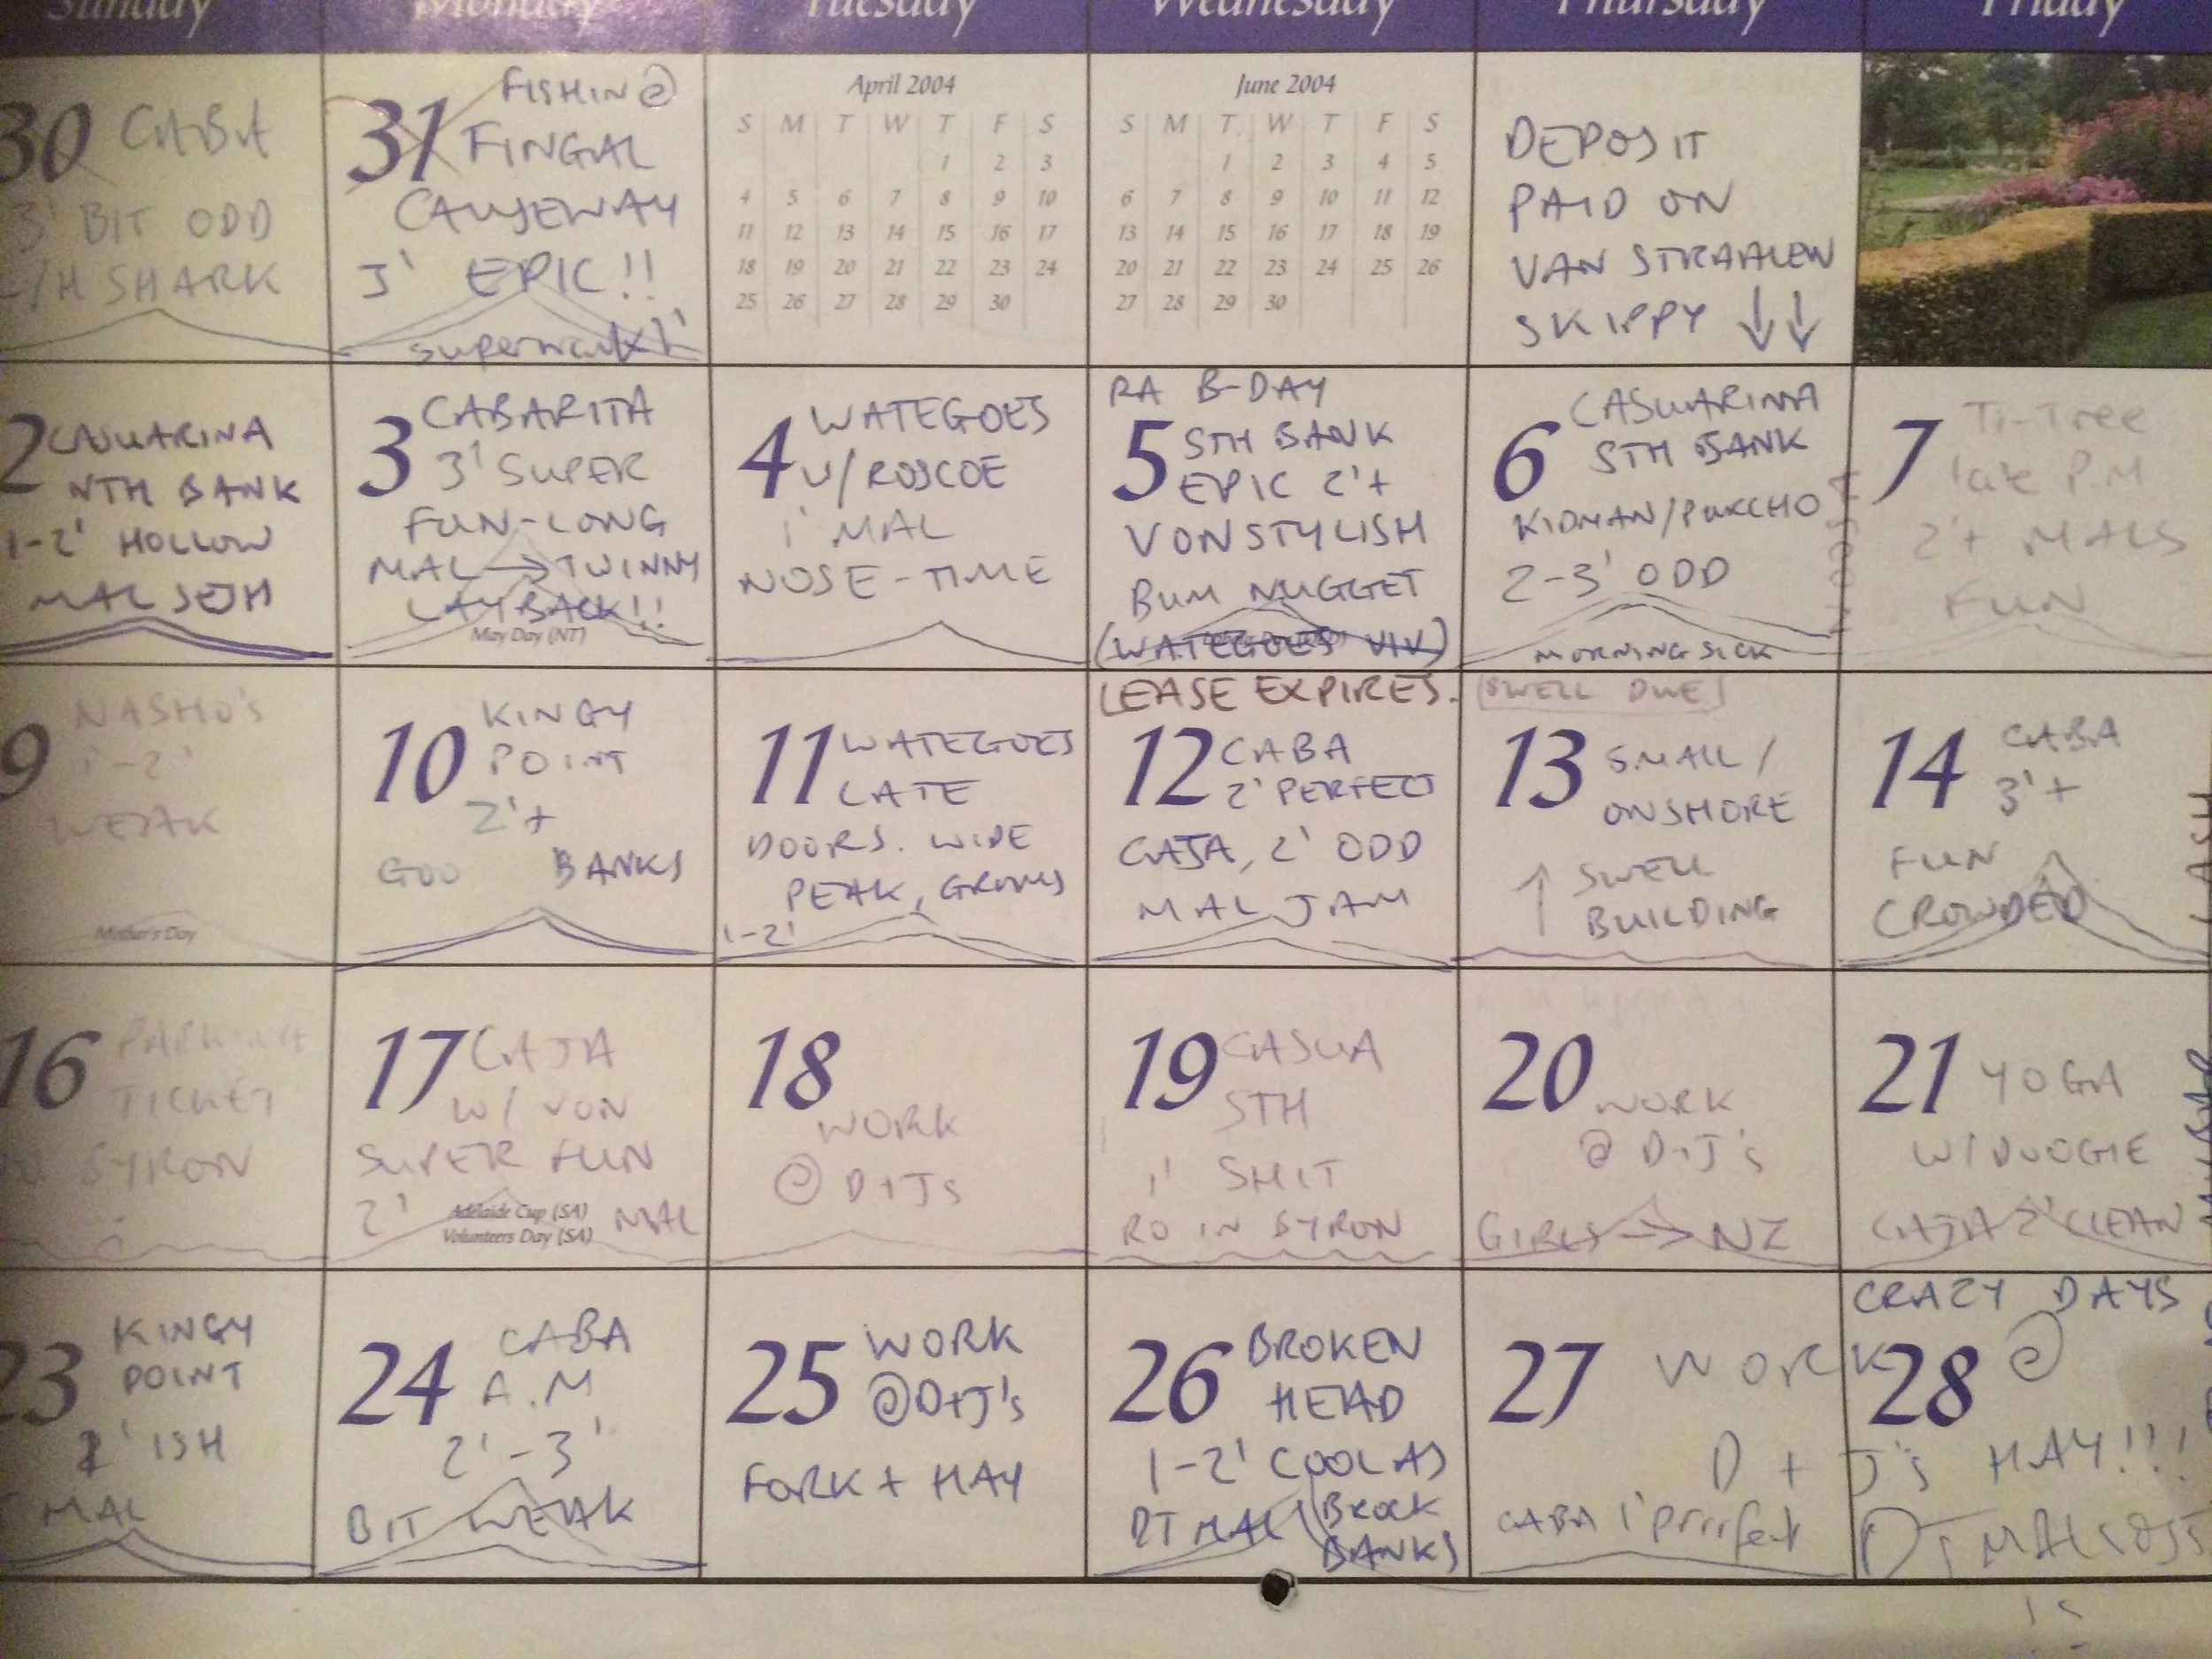 Sunday Monday Tuesday Wednesday Thursday Friday
30 CABA
3' BIT ODD
L/H SHARK
31 FISHIN @
FINGAL
CAUSEWAY
3' EPIC!!
April 2004
S M T W T F S
1 2 3
4 5 6 7 8 9 10
11 12 13 14 15 16 17
18 19 20 21 22 23 24
25 26 27 28 29 30
June 2004
S M T W T F S
1 2 3 4 5
6 7 8 9 10 11 12
13 14 15 16 17 18 19
20 21 22 23 24 25 26
27 28 29 30
DEPOSIT
PAID ON
VAN STRAALEN
SKIPPY ↓↓
2 CASUARINA
NTH BANK
1-2' HOLLOW
MAL SESH
3 CABARITA
3' SUPER
FUN-LONG
MAL → TWINNY
LAYBACK!!
May Day (NT)
4 WATEGOES
W/ROSCOE
1' MAL
NOSE-TIME
RA B-DAY
5 STH BANK
EPIC 2'+
VONSTYLISH
BUM NUGGET
(WATEGOES VIV)
6 CASUARINA
STH BANK
KIDMAN/PARCHO
2-3' ODD
MORNING SICK
7 Ti-Tree
late P.M
2'+ MALS
FUN
9 NASHO'S
1'-2'
WEAK
Mother's Day
10 KINGY
POINT
2'+
GOO BANKS
11 WATEGOES
LATE
DOORS. WIDE
PEAK, GROMS
1-2'
LEASE EXPIRES.
12 CABA
2' PERFECT
CAJA, 2' ODD
MAL JAM
(SWELL DUE)
13 SMALL /
ONSHORE
↑ SWELL
BUILDING
14 CABA
3'+
FUN
CROWDED
16 PARKING
TICKET
BYRON
17 CAJA
W/ VON
SUPER FUN
2' MAL
Adelaide Cup (SA)
Volunteers Day (SA)
18
WORK
@ D+J's
19 CASUA
STH
1' SHIT
RO IN BYRON
20
WORK
@ D+J's
GIRLS → NZ
21 YOGA
W/DOOGIE
CAJA 2' CLEAN
23 KINGY
POINT
2' ISH
MAL
24 CABA
A.M
2'-3'
BIT WEAK
25 WORK
@D+J's
FORK + HAY
26 BROKEN
HEAD
1-2' COOL AS
DT MAL (Brock
BANKS)
27 WORK
D + J's
CABA 1' prrrfect
CRAZY DAYS
28 @
HAY!!!
DT MAL